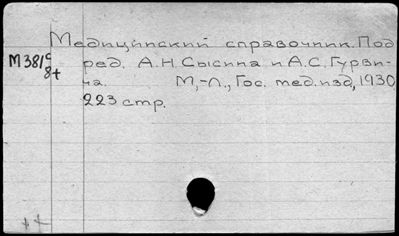 Медицинский справочник. Под
М381с ред. А.Н Сысина и А.С. Гурви-
8+ ча. М,-Л., Гос. мед. изд, 1930
223 стр.